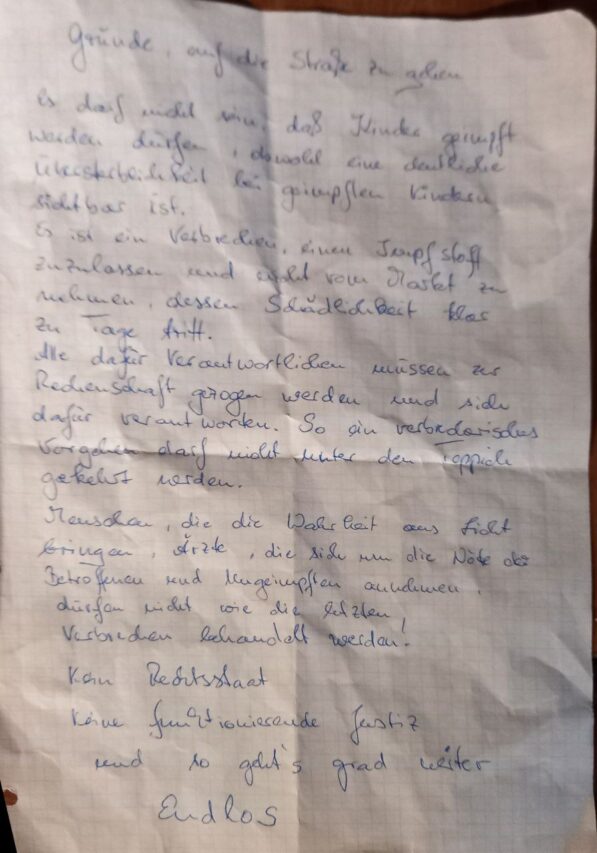 Gründe, auf die Straße zu gehen
Es darf nicht sein, daß Kinder geimpft
werden dürfen, obwohl eine deutliche
Übersterblichkeit bei geimpften Kindern
sichtbar ist.
Es ist ein Verbrechen, einen Impfstoff
zuzulassen und nicht vom Markt zu
nehmen, dessen Schädlichkeit klar
zu Tage tritt.
Alle dafür Verantwortlichen müssen zur
Rechenschaft gezogen werden und sich
dafür verantworten. So ein verbrecherisches
Vorgehen darf nicht unter den Teppich
gekehrt werden.
Menschen, die die Wahrheit ans Licht
bringen, Ärzte, die sich um die Nöte der
Betroffenen und Ungeimpften annehmen,
dürfen nicht wie die letzten
Verbrecher behandelt werden!
Kein Rechtsstaat
Keine funktionierende Justiz
und so geht's grad weiter
Endlos